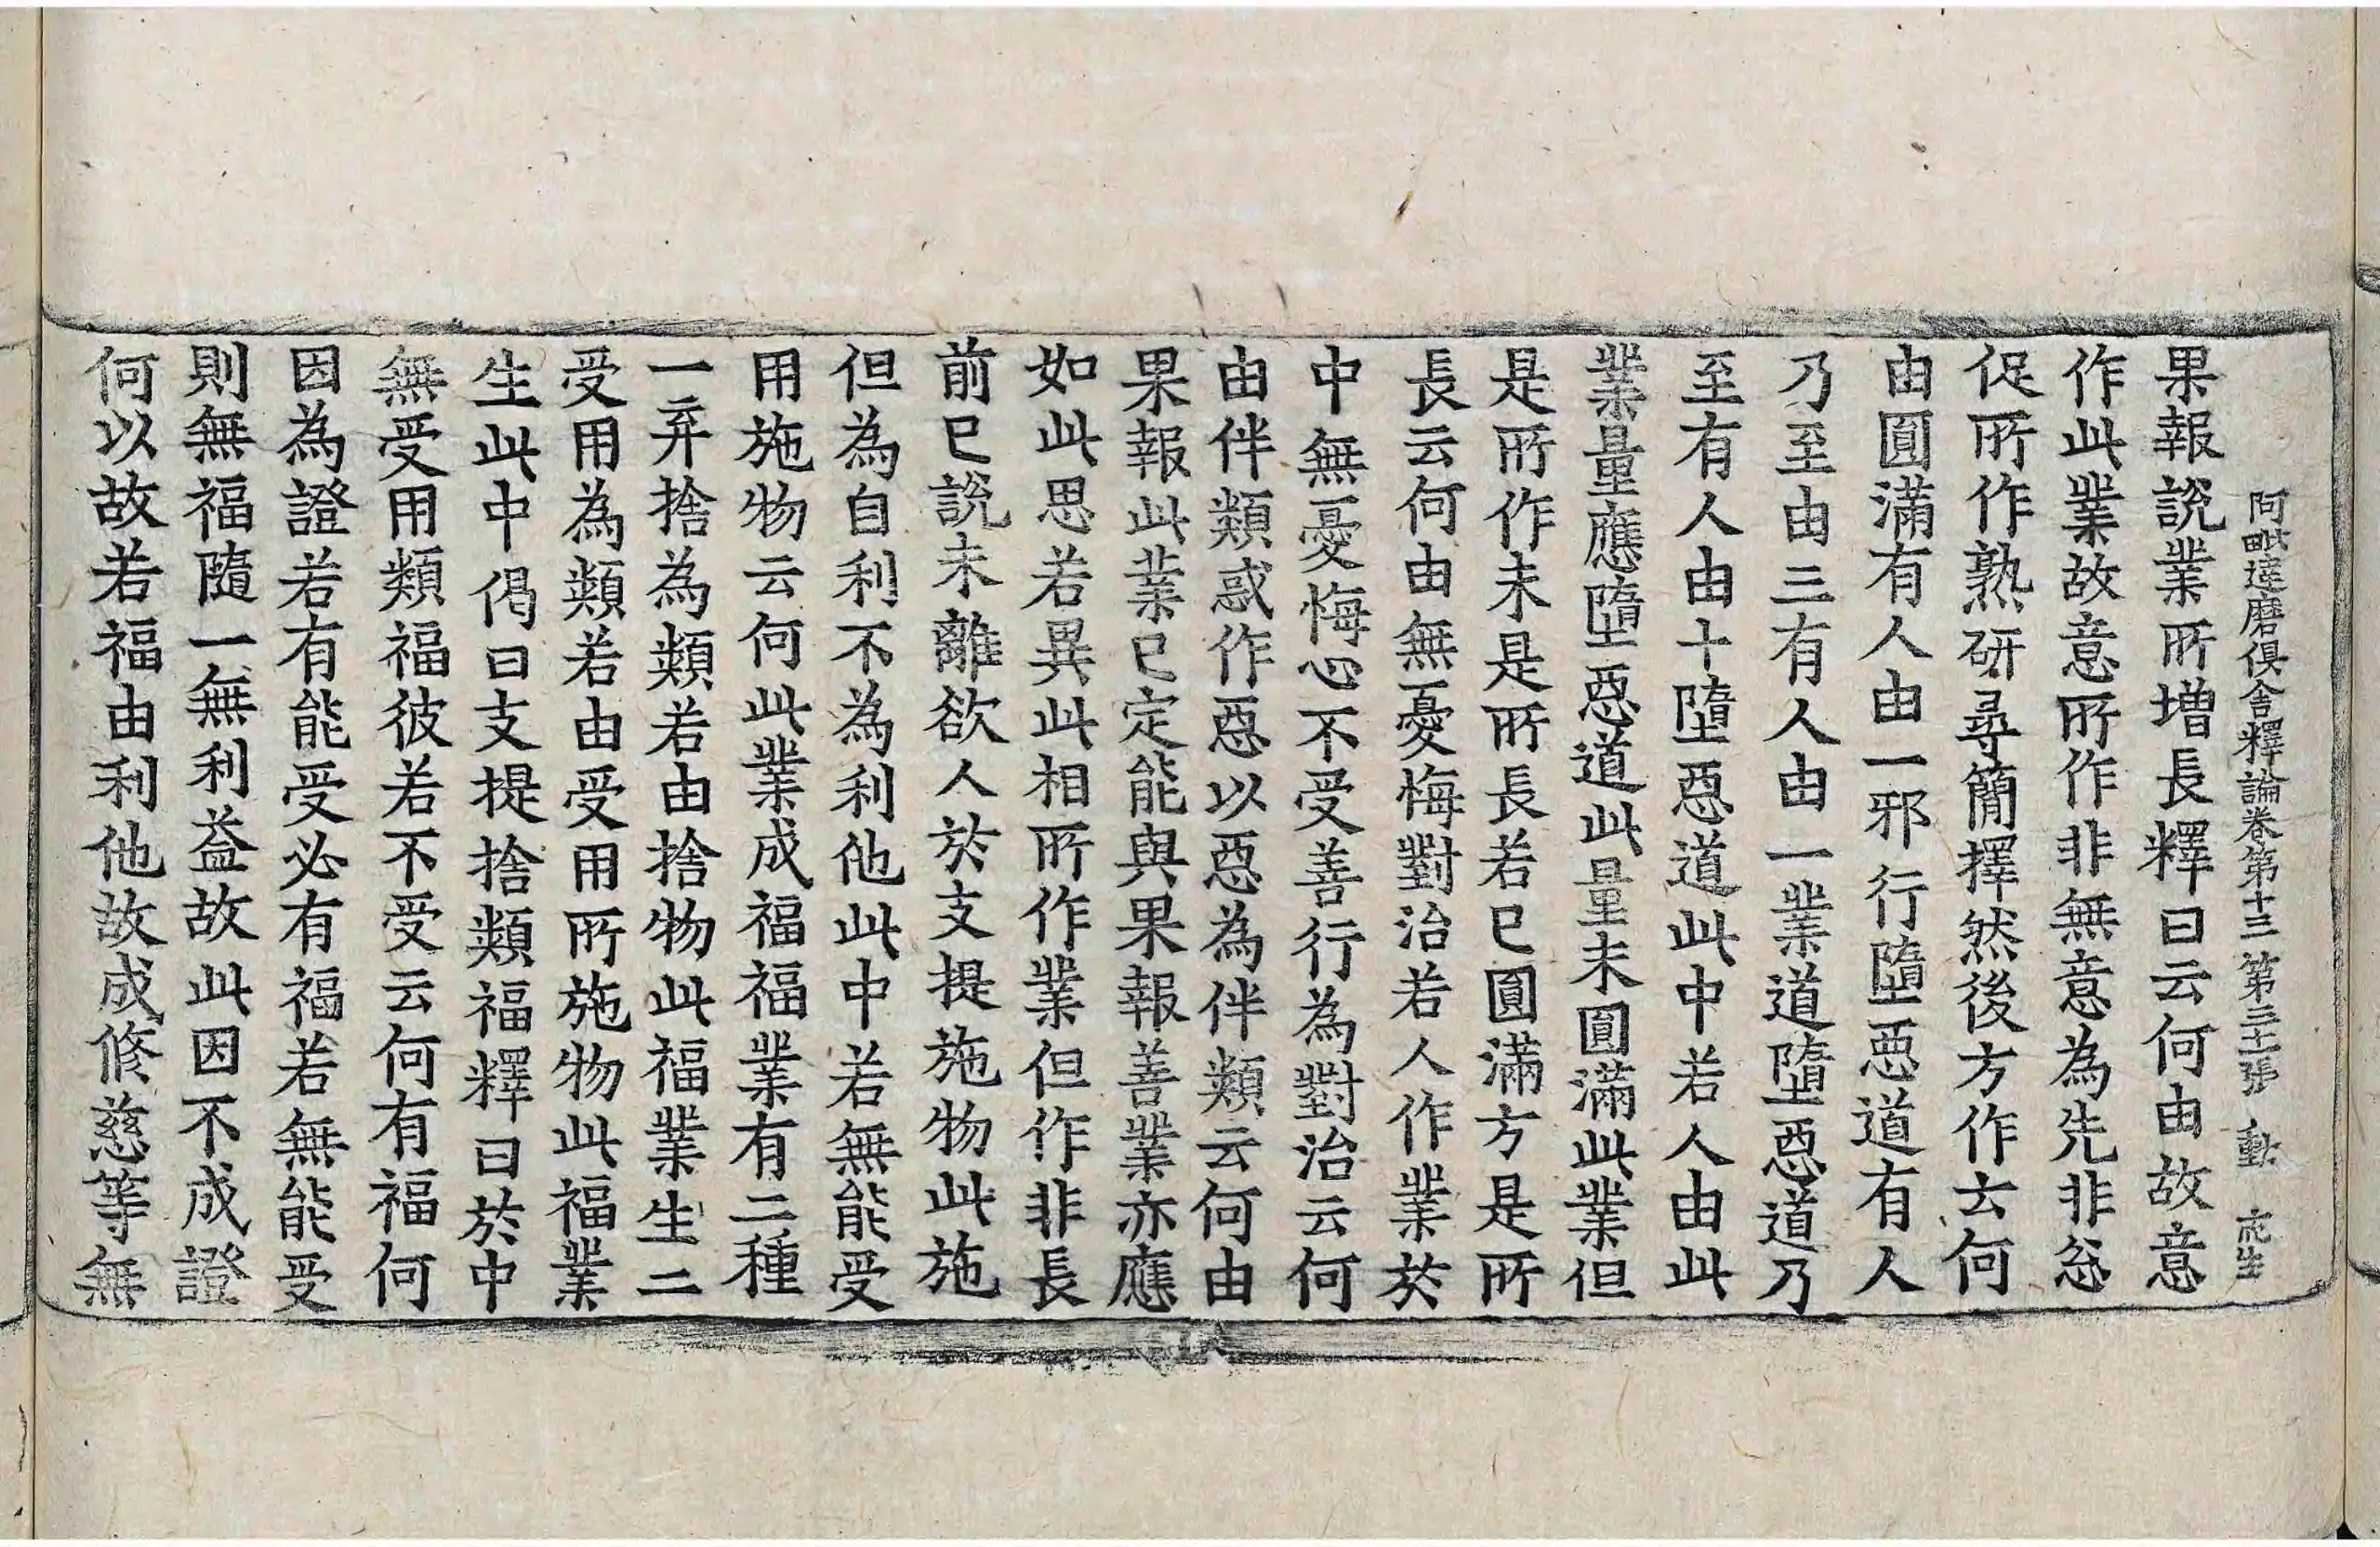 阿毗達磨俱舍釋論卷第十三 第三十二張 動
果報說業所増長釋曰云何由故意
作此業故意所作非無意為先非忩
促所作熟研尋簡擇然後方作云何
由圓滿有人由一邪行墮惡道有人
乃至由三有人由一業道墮惡道乃
至有人由十墮惡道此中若人由此
業量應墮惡道此量未圓滿此業但
是所作未是所長若已圓滿方是所
長云何由無憂悔對治若人作業於
中無憂悔心不受善行為對治云何
由伴類惑作惡以惡為伴類云何由
果報此業已定能與果報善業亦應
如此思若異此相所作業但作非長
前已說未離欲人於支提施物此施
但為自利不為利他此中若無能受
用施物云何此業成福福業有二種
一弃捨為類若由捨物此福業生二
受用為類若由受用所施物此福業
生此中偈曰支提捨類福釋曰於中
無受用類福彼若不受云何有福何
因為證若有能受必有福若無能受
則無福隨一無利益故此因不成證
何以故若福由利他故成修慈等無